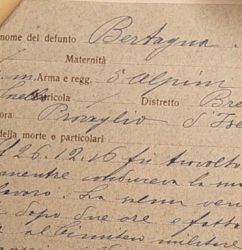 nome del defunto Bertagna
Maternità
Arma e regg. 5 Alpini
Matricola Distretto Bre
ora Provaglio d'Ise
della morte e particolari
26.12.16 fu travolto
mentre conduceva la mu
lavoro. La salma ven
dopo due ore e fatta
al Cimitero militare